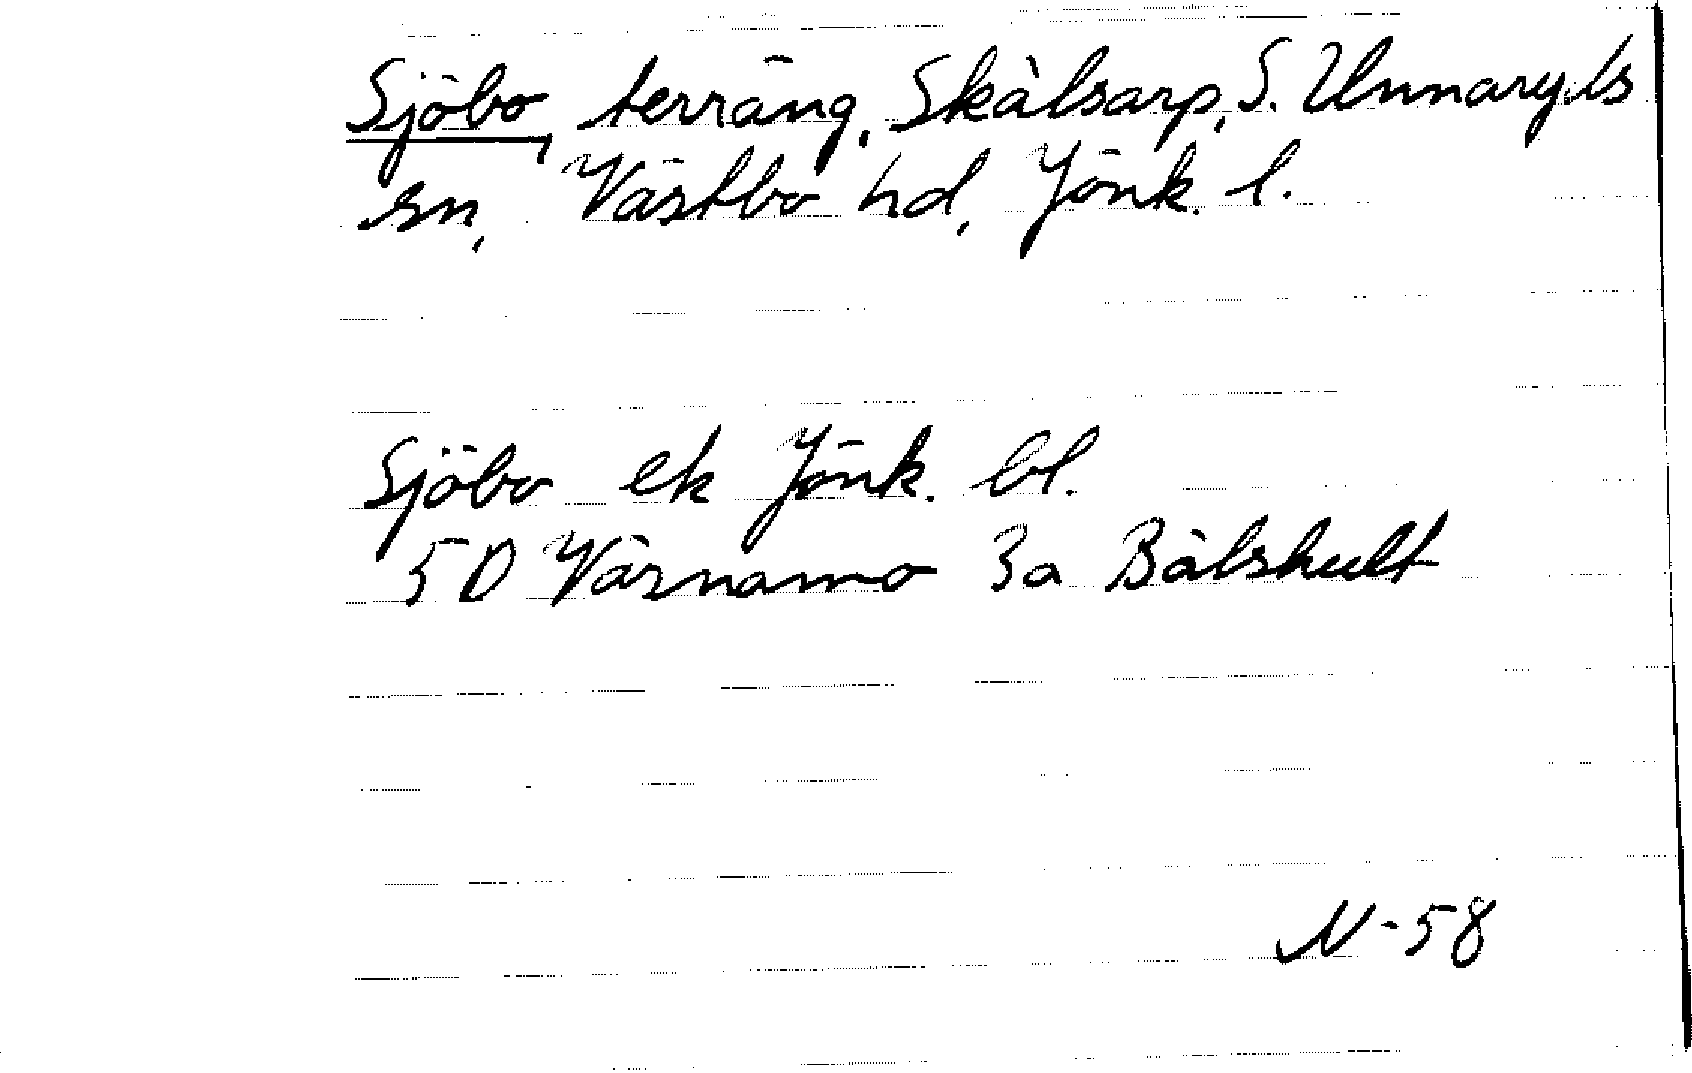 Sjöbo, terräng, Skålsarp, S. Unnaryds
sn, Västbo hd, Jönk. l.
Sjöbo ek Jönk. bl.
5D Värnamo 3a Bålshult
N-58